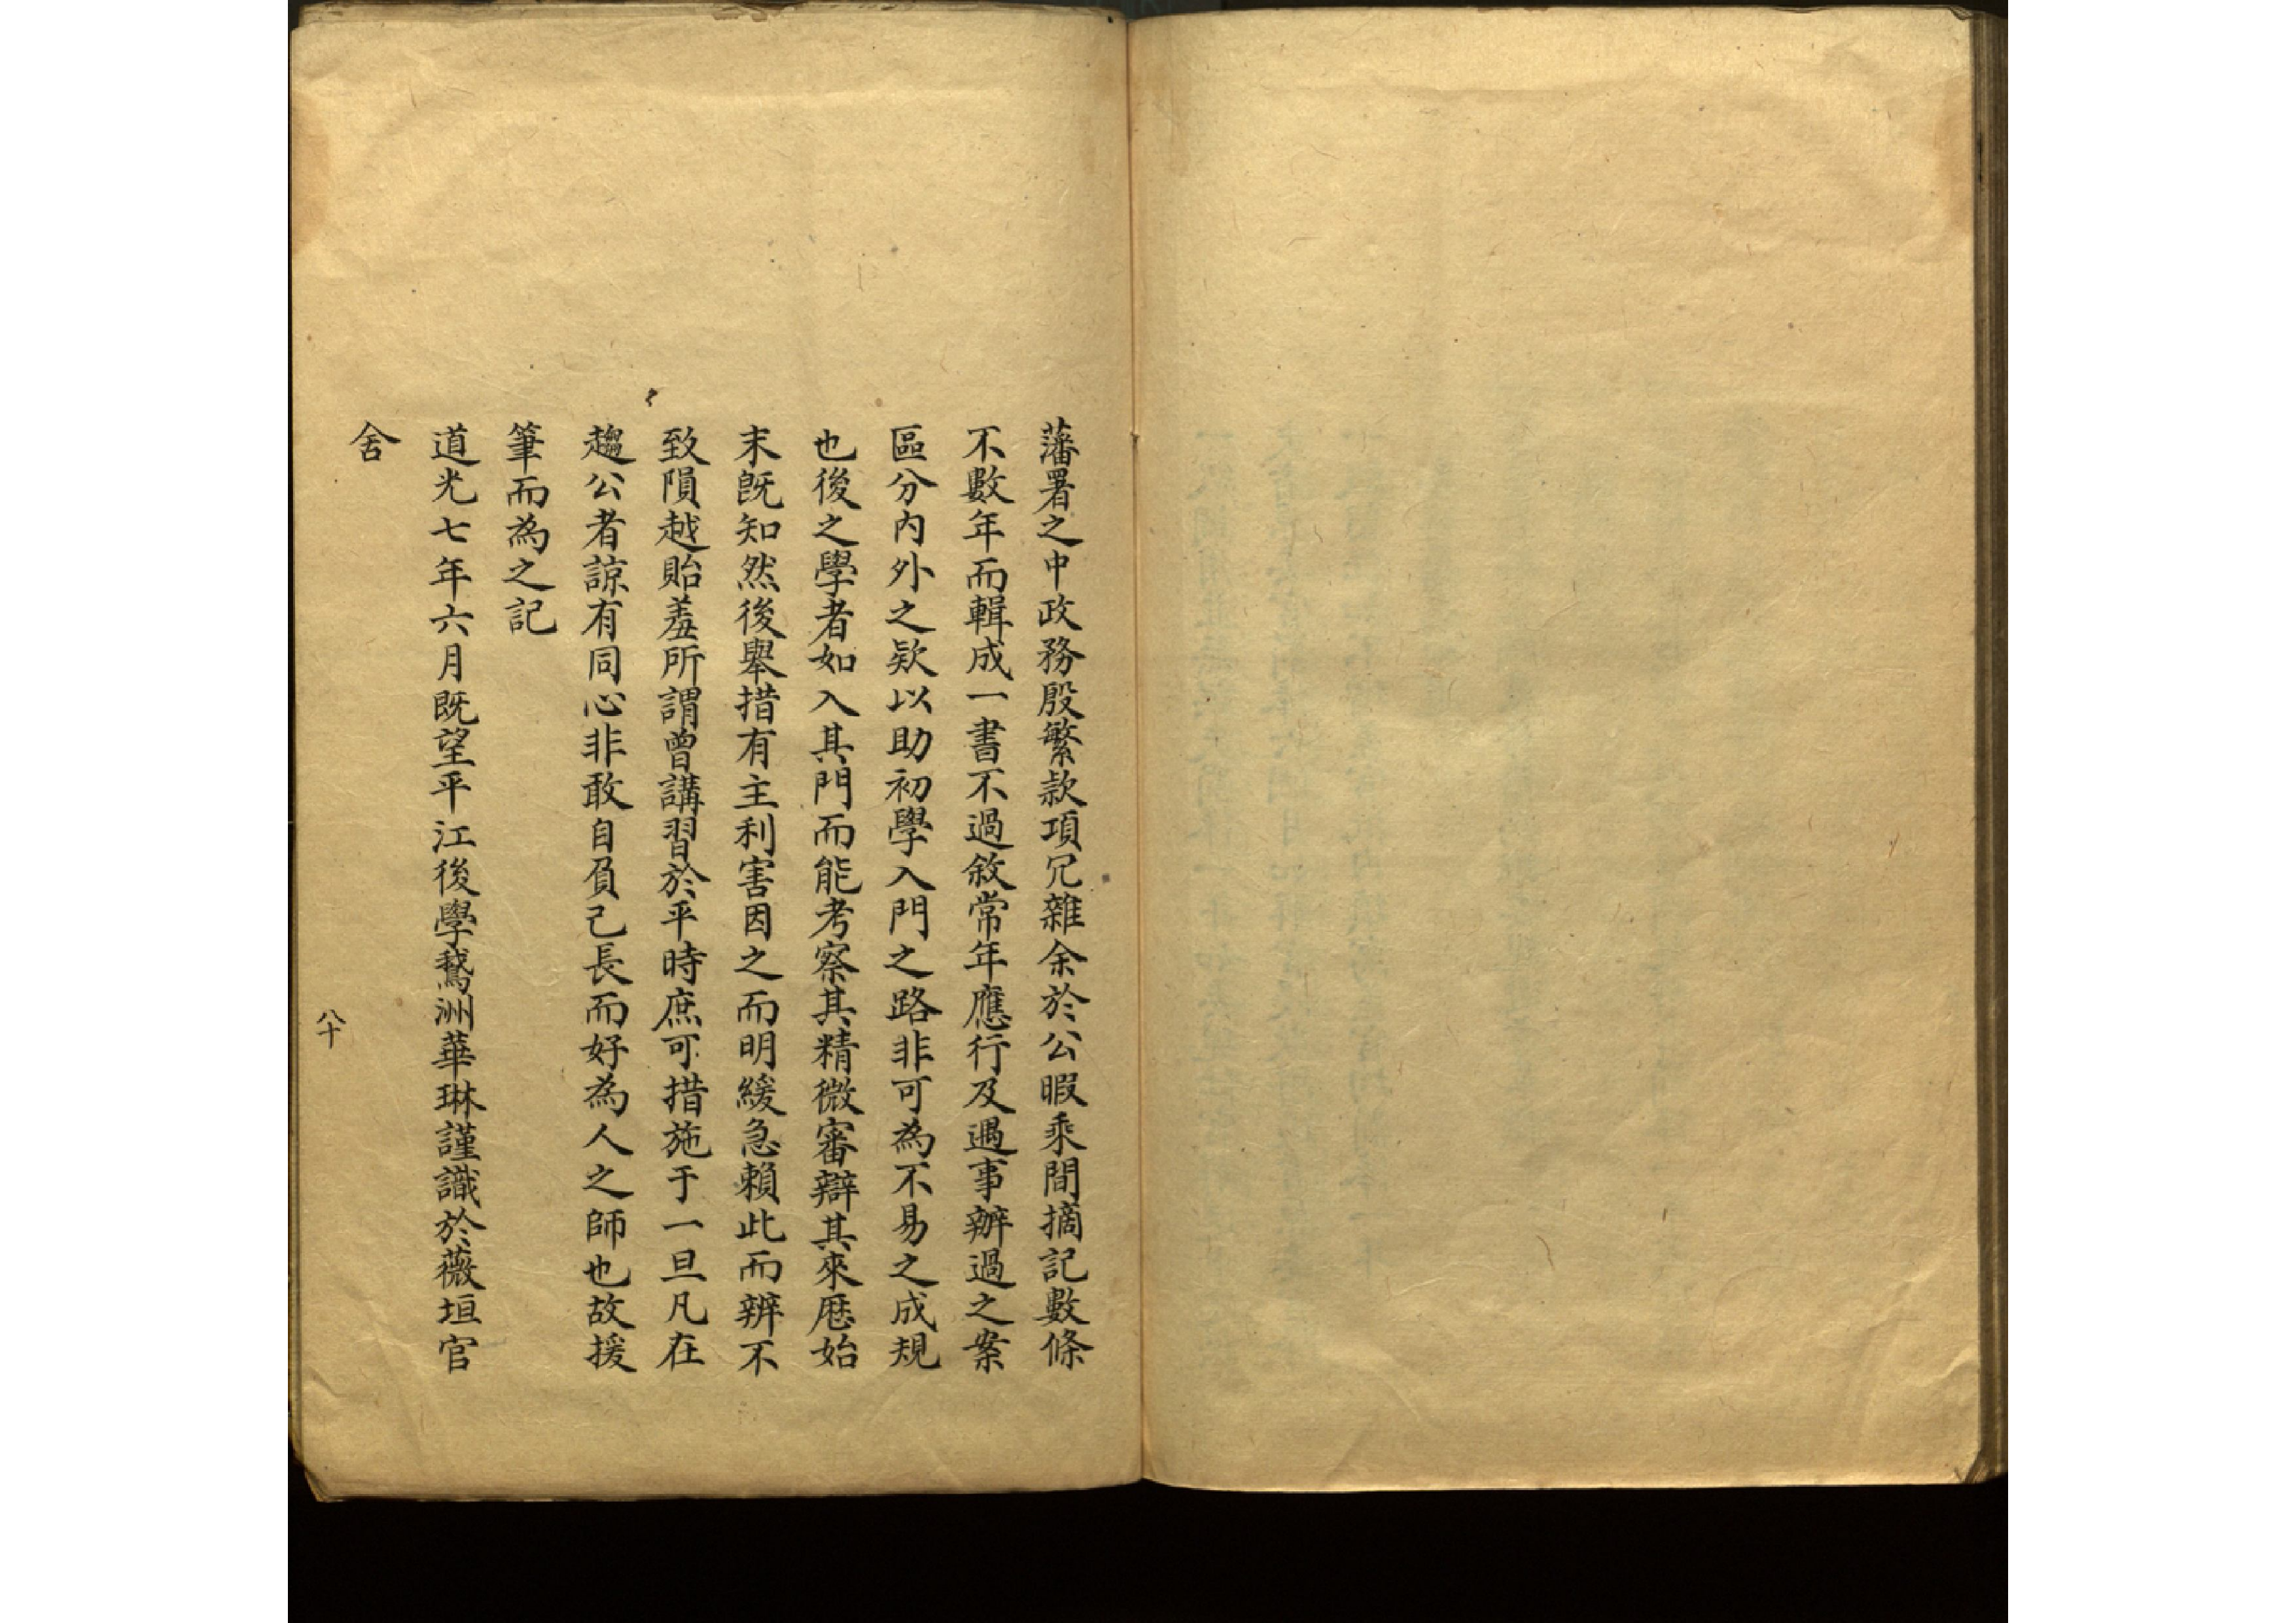 藩署之中政務殷繁款項冗雜余於公暇乘間摘記數條
不數年而輯成一書不過敘常年應行及遇事辦過之案
區分內外之欵以助初學入門之路非可為不易之成規
也後之學者如入其門而能考察其精微審辯其來歷始
末既知然後舉措有主利害因之而明緩急賴此而辨不
致隕越貽羞所謂曾講習於平時庶可措施于一旦凡在
趨公者諒有同心非敢自負己長而好為人之師也故援
筆而為之記
道光七年六月既望平江後學鵞洲華琳謹識於薇垣官
舍
八十